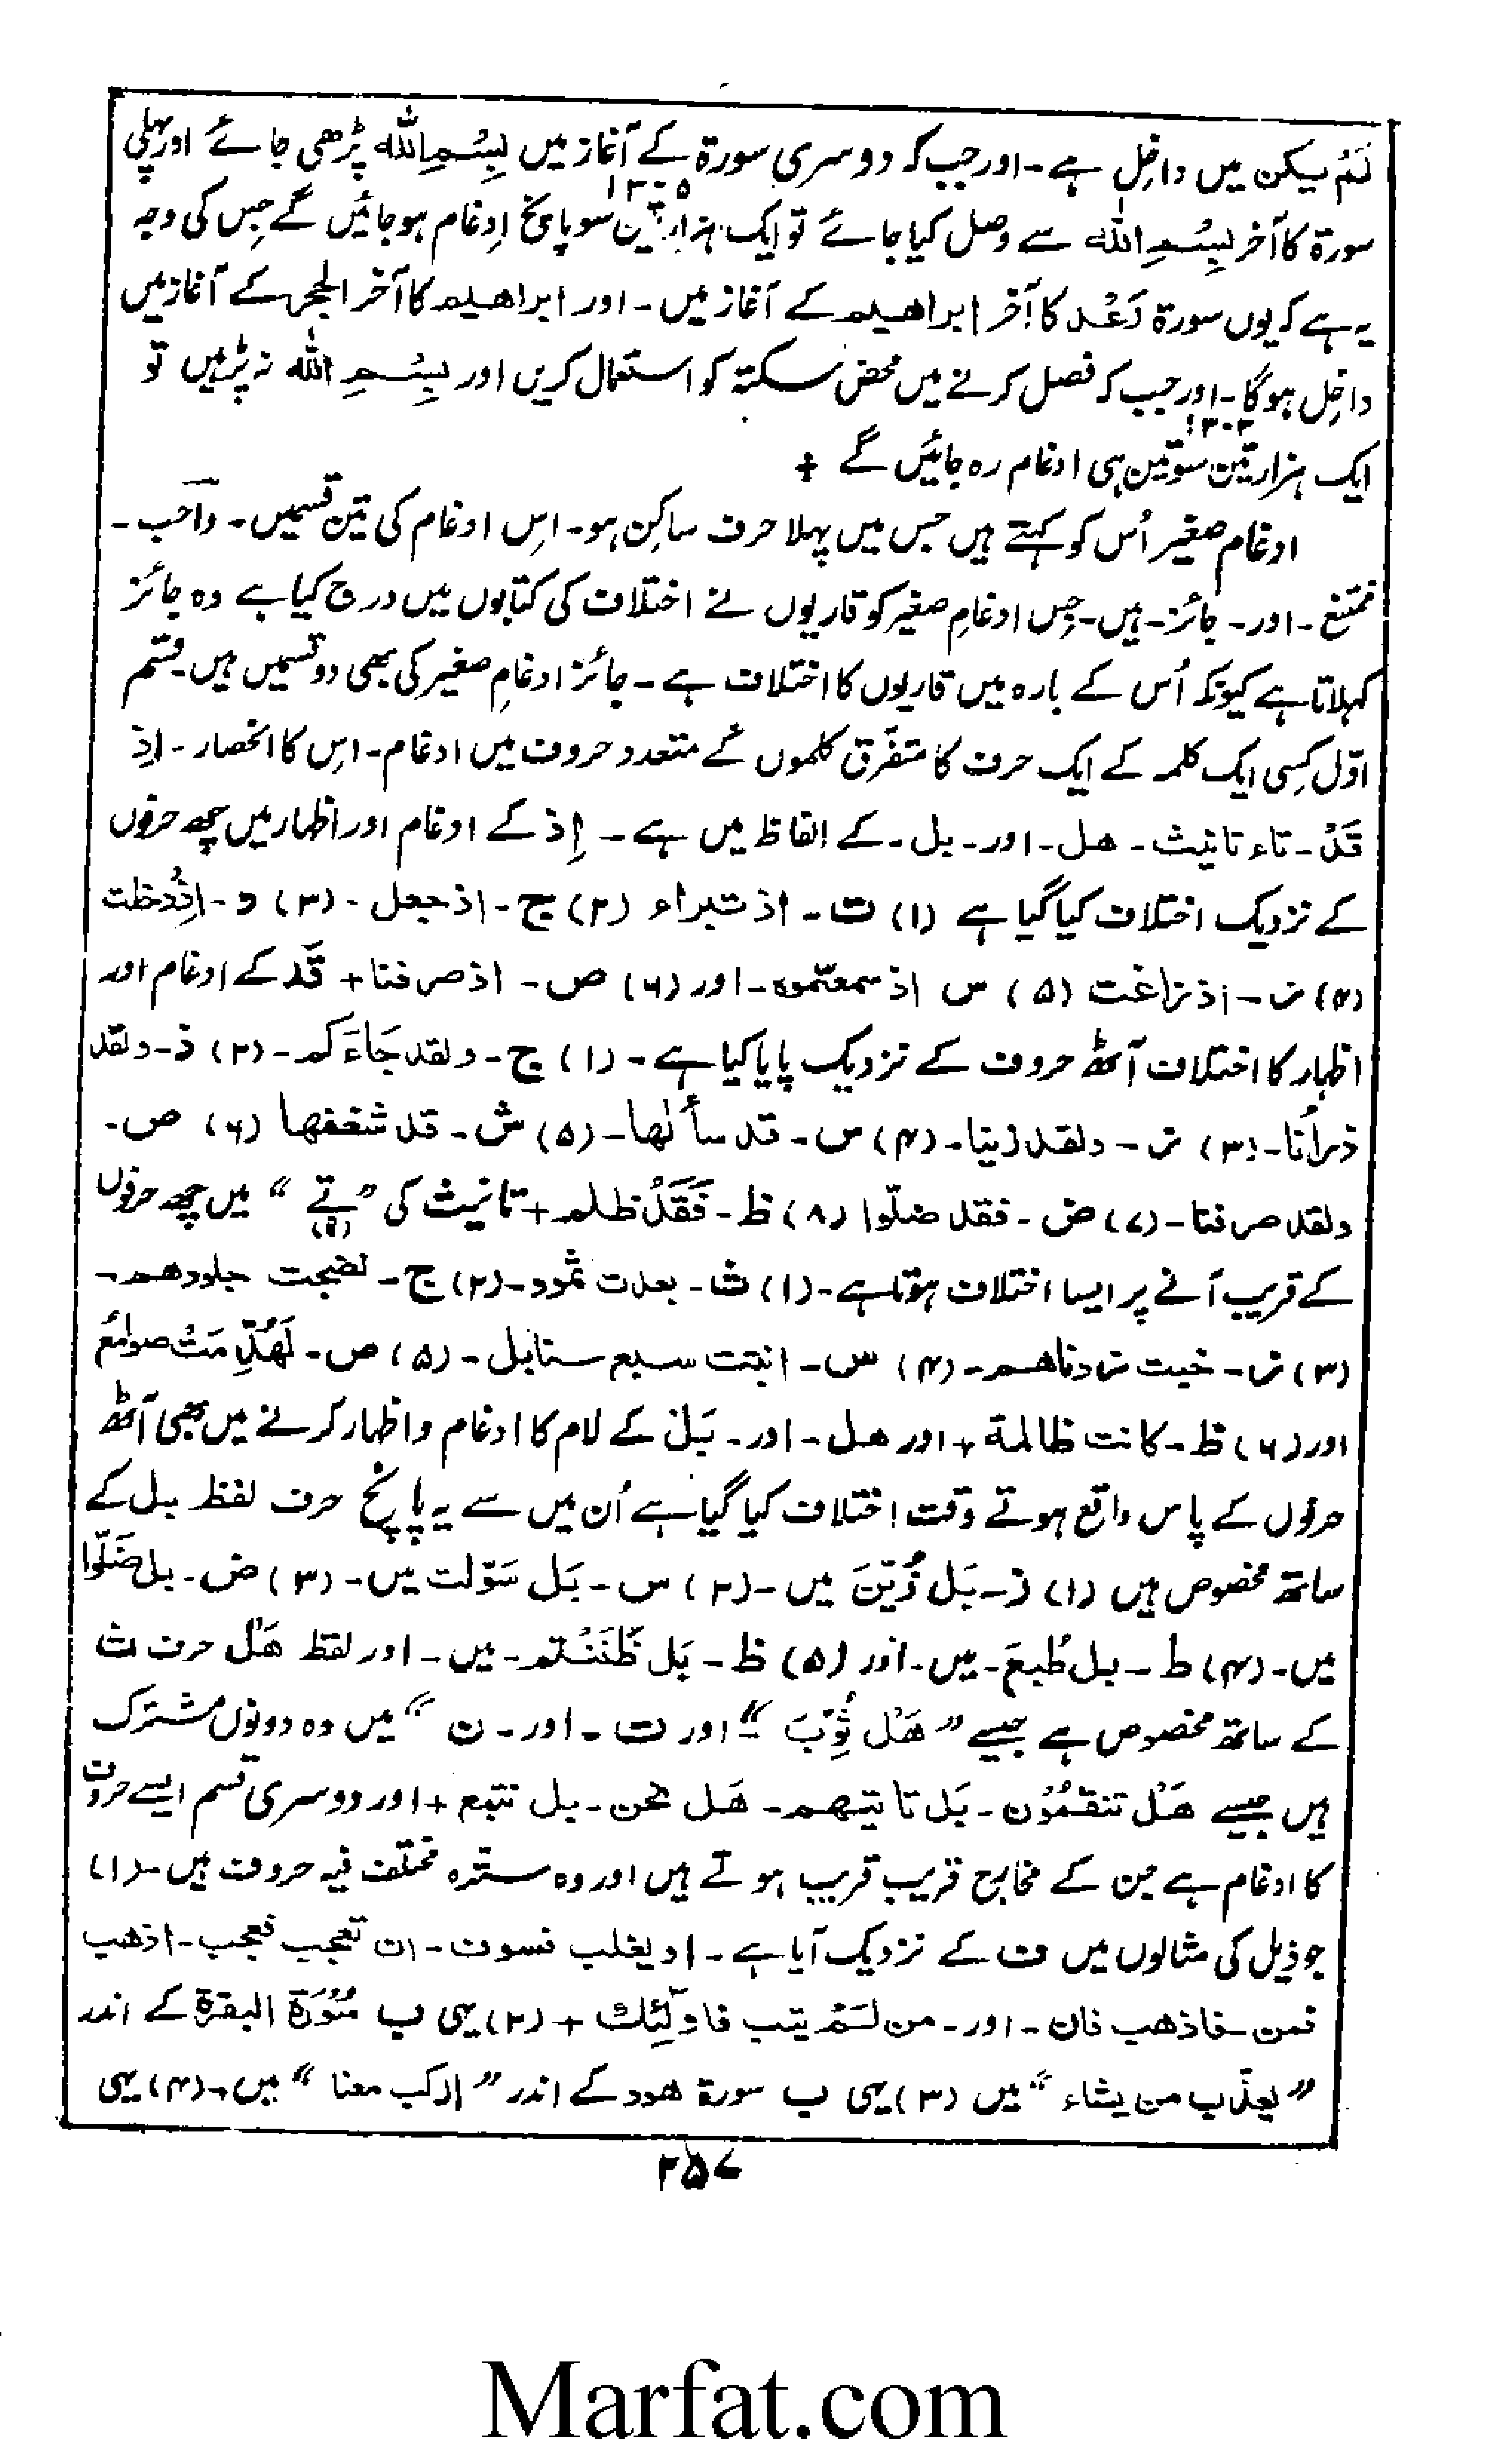 لَمْ یکن میں داخِل ہے۔ اور جب کہ دوسری سورۃ کے آغاز میں بِسْمِ اللہ پڑھی جائے اور پہلی
۱۳۰۵
سورۃ کا آخر بِسْمِ اللہ سے وصل کیا جائے تو ایک ہزار تین سو پانچ اِدغام ہوجائیں گے جِس کی وجہ
یہ ہے کہ یوں سورۃ رَعْد کا آخر ابراھیم کے آغاز میں۔ اور ابراھیم کا آخر الحجر کے آغاز میں
داخِل ہوگا۔ اور جب کہ فصل کرنے میں محض سکتۃ کو استعمال کریں اور بِسْمِ اللہ نہ پڑہیں تو
۱۳۰۳
ایک ہزار تین سو تین ہی ادغام رہ جائیں گے +
ادغام صغیر اُس کو کہتے ہیں جس میں پہلا حرف ساکِن ہو۔ اِس ادغام کی تین قسمیں۔ واجب۔
ممتنع۔ اور۔ جائز۔ ہیں۔ جِس ادغامِ صغیر کو قاریوں نے اختلاف کی کتابوں میں درج کیا ہے وہ جائز
کہلاتا ہے کیونکہ اُس کے بارہ میں قاریوں کا اختلاف ہے۔ جائز ادغامِ صغیر کی بھی دو قسمیں ہیں۔ قسم
اوّل کِسی ایک کلمہ کے ایک حرف کا متفرّق کلموں کے متعدد حروف میں ادغام۔ اِس کا انحصار۔ اِذ
قَدْ۔ تاء تانیث۔ ھل۔ اور۔ بل۔ کے الفاظ میں ہے۔ اِذ کے ادغام اور اظہار میں چھ حرفوں
کے نزدیک اختلاف کیا گیا ہے (۱) ت۔ اذ تبراء (۲) ج۔ اذ جعل۔ (۳) د۔ اِذْ دخلت
(۴) ز۔ اذ زاغت (۵) س اذ سمعتموہ۔ اور (۶) ص۔ اذ صرفنا + قَد کے ادغام اور
اظہار کا اختلاف آٹھ حروف کے نزدیک پایا گیا ہے۔ (۱) ج۔ ولقد جَاءَکم۔ (۲) ذ۔ ولقد
ذرأنا۔ (۳) ز۔ ولقد زینا۔ (۴) س۔ قد سألھا۔ (۵) ش۔ قد شغفھا (۶) ص۔
ولقد صرفنا۔ (۷) ض۔ فقد ضلّوا (۸) ظ۔ فَقَدْ ظلم + تانیث کی ”تے“ میں چھ حرفوں
کے قریب آنے پر ایسا اختلاف ہوتا ہے۔ (۱) ث۔ بعدت ثمود۔ (۲) ج۔ نضجت جلودھم۔
(۳) ز۔ خبت زدناھم۔ (۴) س۔ انبتت سبع سنابل۔ (۵) ص۔ لَھُدِّمَتْ صوامع
اور (۶) ظ۔ کانت ظالمة + اور ھل۔ اور۔ بَل کے لام کا ادغام واظہار کرنے میں بھی آٹھ
حرفوں کے پاس واقع ہوتے وقت اختلاف کیا گیا ہے اُن میں سے یہ پانچ حرف لفظ بل کے
ساتھ مخصوص ہیں (۱) ز۔ بَل زُیِّنَ میں۔ (۲) س۔ بَل سَوّلت میں۔ (۳) ض۔ بل ضَلّوا
میں۔ (۴) ط۔ بل طُبِعَ۔ میں۔ اور (۵) ظ۔ بَل ظَنَنْتم۔ میں۔ اور لفظ ھَلْ حرف ث
کے ساتھ مخصوص ہے جیسے ”ھَلْ ثُوِّبَ“ اور ت۔ اور۔ ن“ میں وہ دونوں مشترک
ہیں جیسے ھَلْ تنقمُوْن۔ بَل تاتیھم۔ ھَل نحن۔ بل نتبع + اور دوسری قسم ایسے حروف
کا ادغام ہے جن کے مخارج قریب قریب ہوتے ہیں اور وہ سترہ مختلف فیہ حروف ہیں۔ (۱)
جو ذیل کی مثالوں میں ف کے نزدیک آیا ہے۔ او یغلب فسوف۔ ان تعجب فعجب۔ اذھب
فمن۔ فاذھب فان۔ اور۔ من لَمْ یتب فاولٰئك + (۲) یہی ب سُوْرَۃ البقرۃ کے اندر
”یعذّب من یشاء“ میں (۳) یہی ب سورۃ ھود کے اندر ”ارکب معنا“ میں۔ (۴) یہی
۲۵۷
Marfat.com